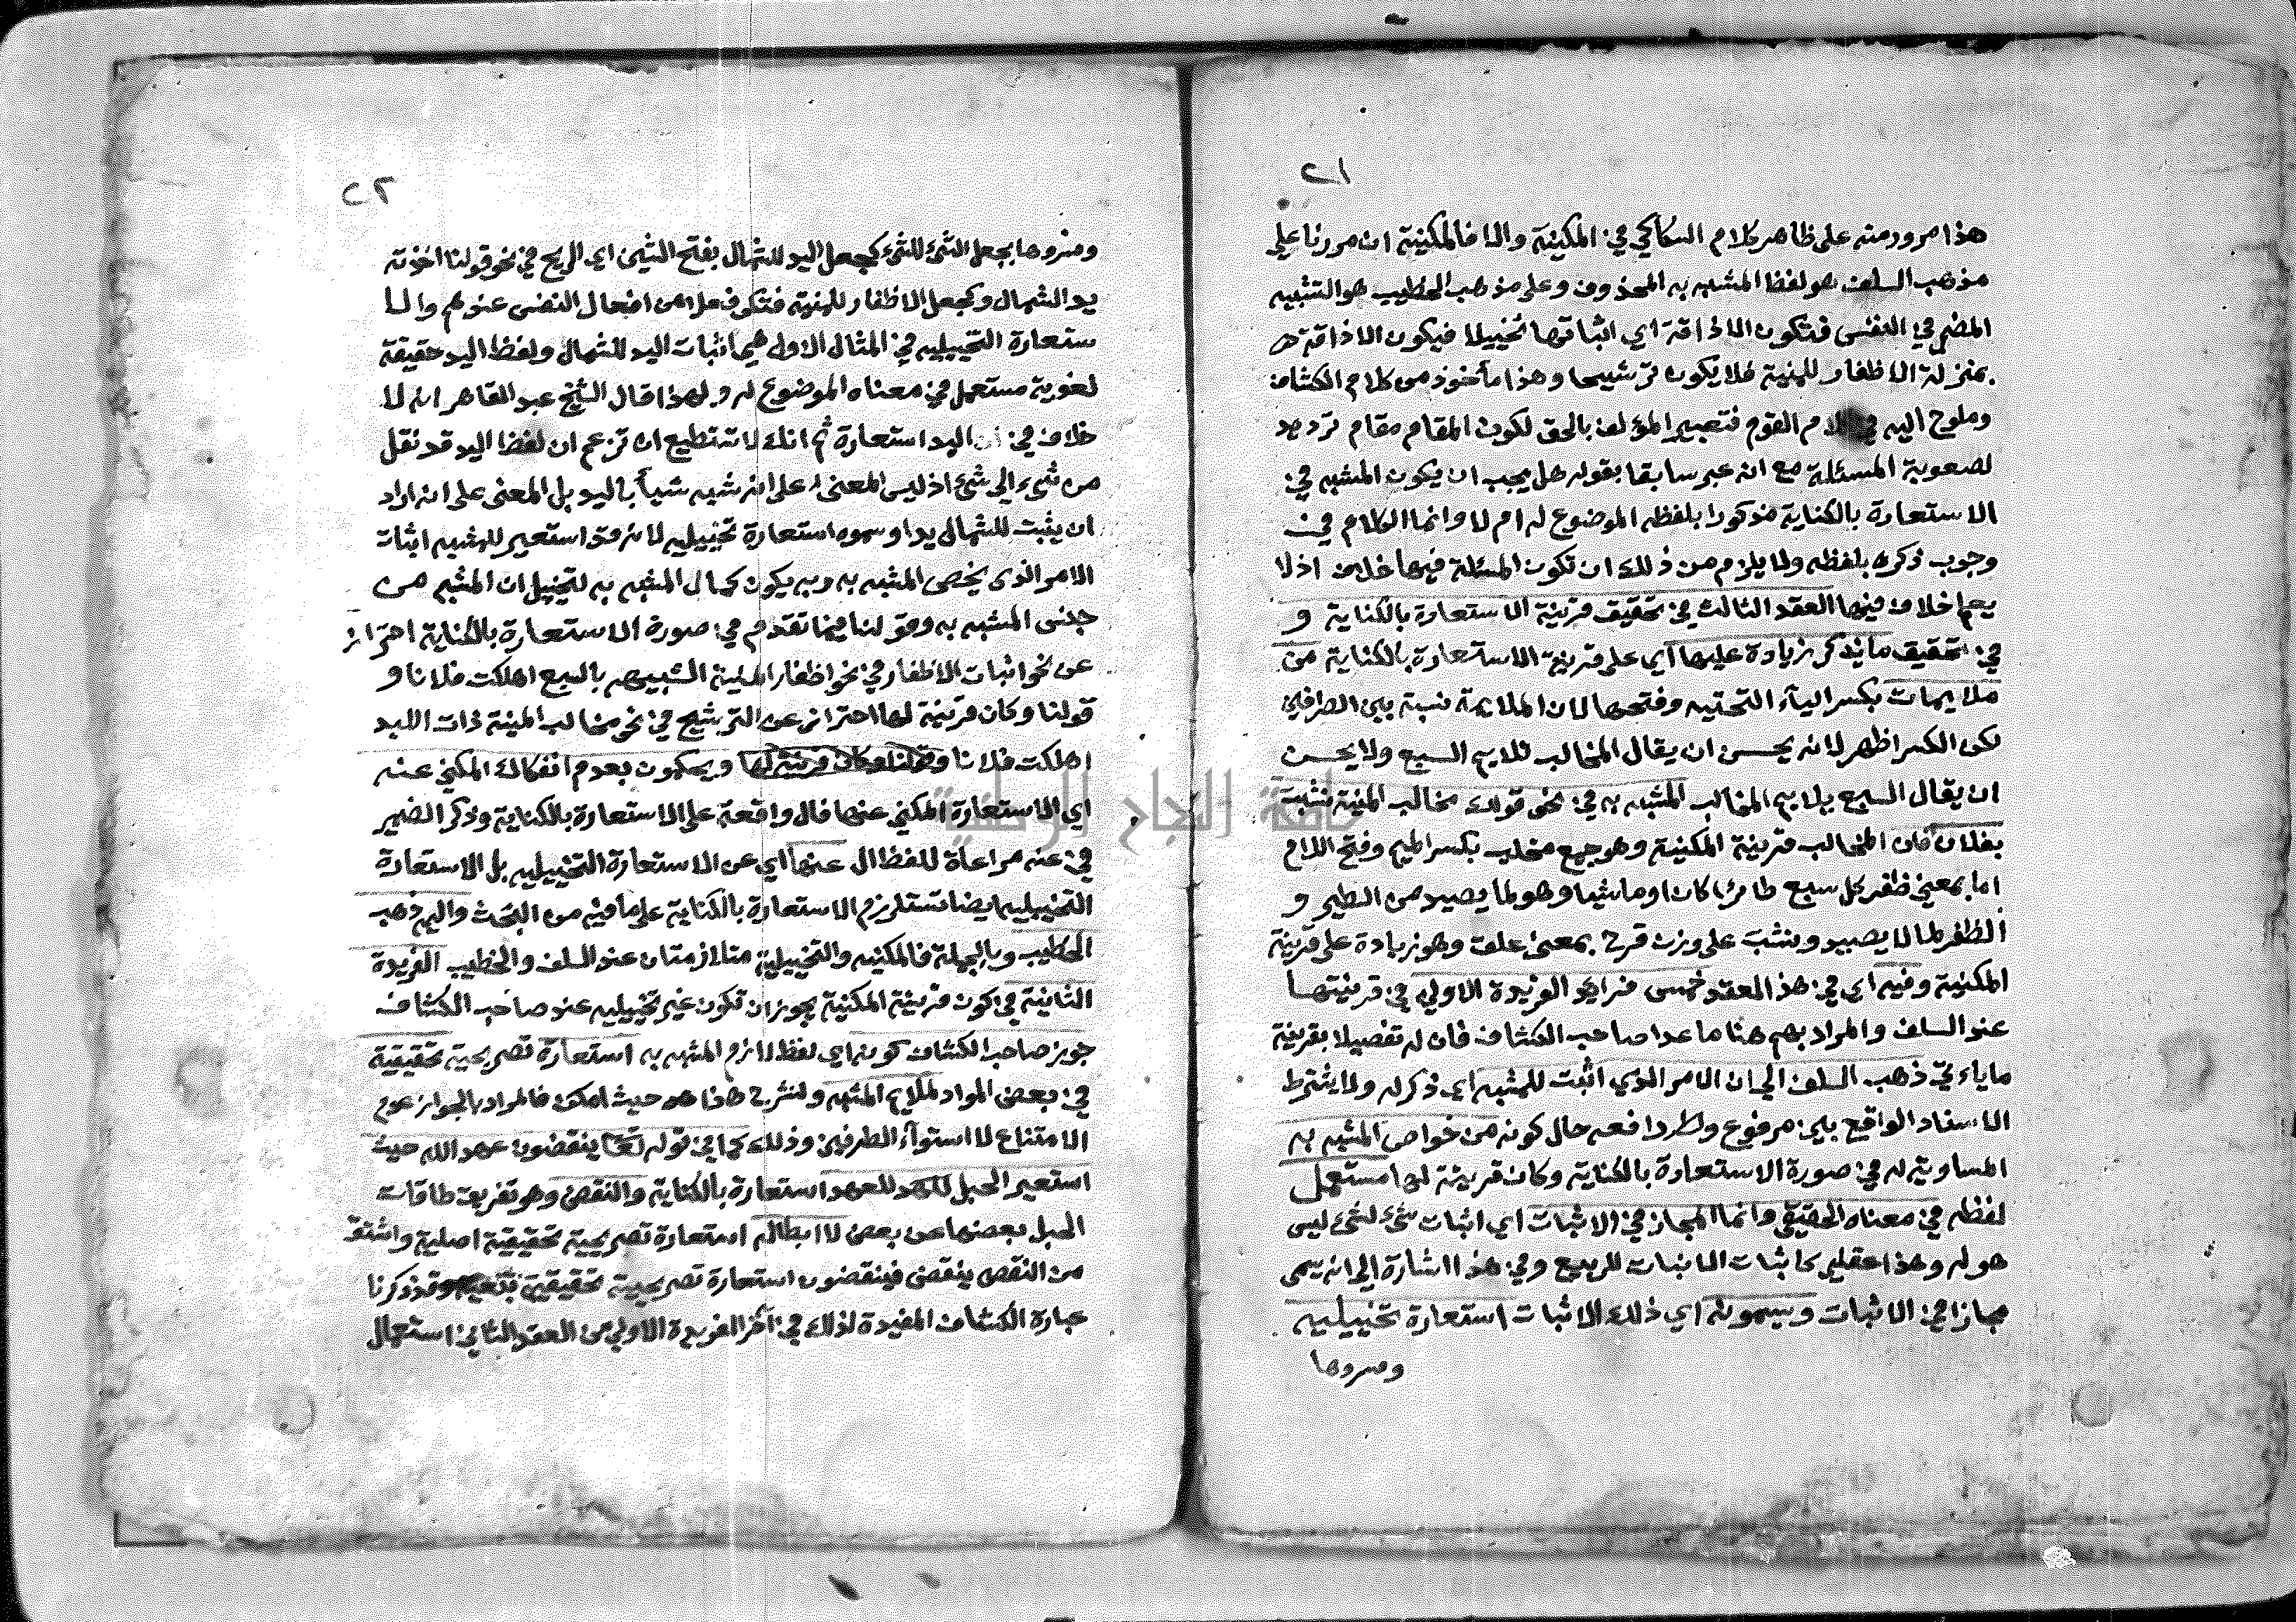 ٢١
هذا مرور منه على ظاهر كلام السكاكي في المكنية والا فالمكنية ان مررنا على
مذهب السلف هو لفظ المشبه به المحذوف وعلى مذهب الخطيب هو التشبيه
المضمر في النفس فتكون الاذاقة اي اثباتها تخييلا فيكون الاذاقة
بمنزلة الاظفار للمنية فلا يكون ترشيحا وهذا مأخوذ من كلام الكشاف
وملوح اليه في كلام القوم فتعبير المؤلف بالحق لكون المقام مقام تردد
لصعوبة المسئلة مع انه عبر سابقا بقوله هل يجب ان يكون المشبه في
الاستعارة بالكناية مذكورا بلفظه الموضوع له ام لا وانما الكلام في
وجوب ذكره بلفظه ولا يلزم من ذلك ان تكون المسئلة فيها خلاف اذ لا
يعم خلاف فيها العقد الثالث في تحقيق قرينة الاستعارة بالكناية و
في تحقيق ما يذكر زيادة عليها اي على قرينة الاستعارة بالكناية من
ملايمات بكسر الياء التحتيه وفتحها لان الملايمة نسبة بين الطرفين
لكن الكسر اظهر لانه يحسن ان يقال المخالب تلايم السبع ولا يحسن
ان يقال السبع يلايم المخالب المشبه به في نحو قولك مخالب المنية نشبت
بفلان فان المخالب قرينة المكنية وهو جمع مخلب بكسر الميم وفتح اللام
اما بمعنى ظفر كل سبع طائرا كان او ماشيا وهو لما يصيد من الطير و
الظفر لما لا يصيد ونشب على وزن فرح بمعنى علق وهو زيادة على قرينة
المكنية وفيه اي في هذ العقد خمس فرايد الفريدة الاولى في قرينتها
عند السلف والمراد بهم هنا ما عدا صاحب الكشاف فان له تفصيلا بقرينة
ما ياءتي ذهب السلف الى ان الامر الذي اثبت للمشبه اي ذكر له ولا يشترط
الاسناد الواقع بين مرفوع ورافعه حال كونه من خواص المشبه به
المساوية له في صورة الاستعارة بالكناية وكان قرينة لها مستعمل
لفظه في معناه الحقيقي وانما المجاز في الاثبات اي اثبات شئ لشئ ليس
هو له وهذا عقلي كاثبات الانبات للربيع وفي هذا اشارة الى انه يسمى
مجازا في الاثبات ويسمونه اي ذلك الاثبات استعارة تخييليه
وفسروها
٢٢
وفسروها بجعل الشئ للشئ كجعل اليد للشمال بفتح الشين اي الريح في نحو قولنا اخذته
يد الشمال وكجعل الاظفار للمنية فتكون فعلا من افعال النفس عندهم والا
ستعارة التخييليه في المثال الاول هي اثبات اليد للشمال ولفظ اليد حقيقة
لغوية مستعمل في معناه الموضوع له ولهذا قال الشيخ عبد القاهر انه لا
خلاف في ان اليد استعارة ثم انك لا تستطيع ان تزعم ان لفظ اليد قد نقل
من شئ الى شئ اذ ليس المعنى على انه شبه شيأ باليد بل المعنى على انه اراد
ان يثبت للشمال يدا وسموه استعارة تخييليه لانه قد استعير للمشبه اثبات
الامر الذي يخص المشبه به وبه يكون كمال المشبه به لتخييل ان المشبه من
جنس المشبه به وقولنا فيما تقدم في صورة الاستعارة بالكناية احتراز
عن نحو اثبات الاظفار في نحو اظفار المنية الشبيهه بالسبع اهلكت فلانا و
قولنا وكان قرينة لها احتراز عن الترشيح في نحو مخالب المنية ذات اللبد
اهلكت فلانا وقولنا وكان قرينة لها ويحكمون بعدم انفكاك المكني عنه
اي الاستعارة المكني عنها فال واقعة على الاستعارة بالكناية وذكر الضمير
في عنه مراعاة للفظ ال عنها اي عن الاستعارة التخييليه بل الاستعارة
التخييليه ايضا تستلزم الاستعارة بالكناية على ما فيه من البحث واليه ذهب
الخطيب وبالجملة فالمكنيه والتخييلية متلازمتان عند السلف والخطيب الفريدة
الثانية في كون قرينة المكنية يجوز ان تكون غير تخييليه عند صاحب الكشاف
جوز صاحب الكشاف كونه اي لفظ لازم المشبه به استعارة تصريحية تحقيقية
في بعض المواد لملايم المشبه ولنشرح هذا حيث امكن فالمراد بالجواز عدم
الامتناع لا استواء الطرفين وذلك كما في قوله تعا ينقضون عهد الله حيث
استعير الحبل للعهد استعارة بالكناية والنقض وهو تفريق طاقات
الحبل بعضها عن بعض لابطاله استعارة تصريحية تحقيقية اصلية واشتق
من النقض ينقض فينقضون استعارة تصريحية تحقيقية تبعية وقد ذكرنا
عبارة الكشاف المفيدة لذلك في آخر الفريدة الاولى من العقد الثاني استعمال
جامعة النجاح الوطنية